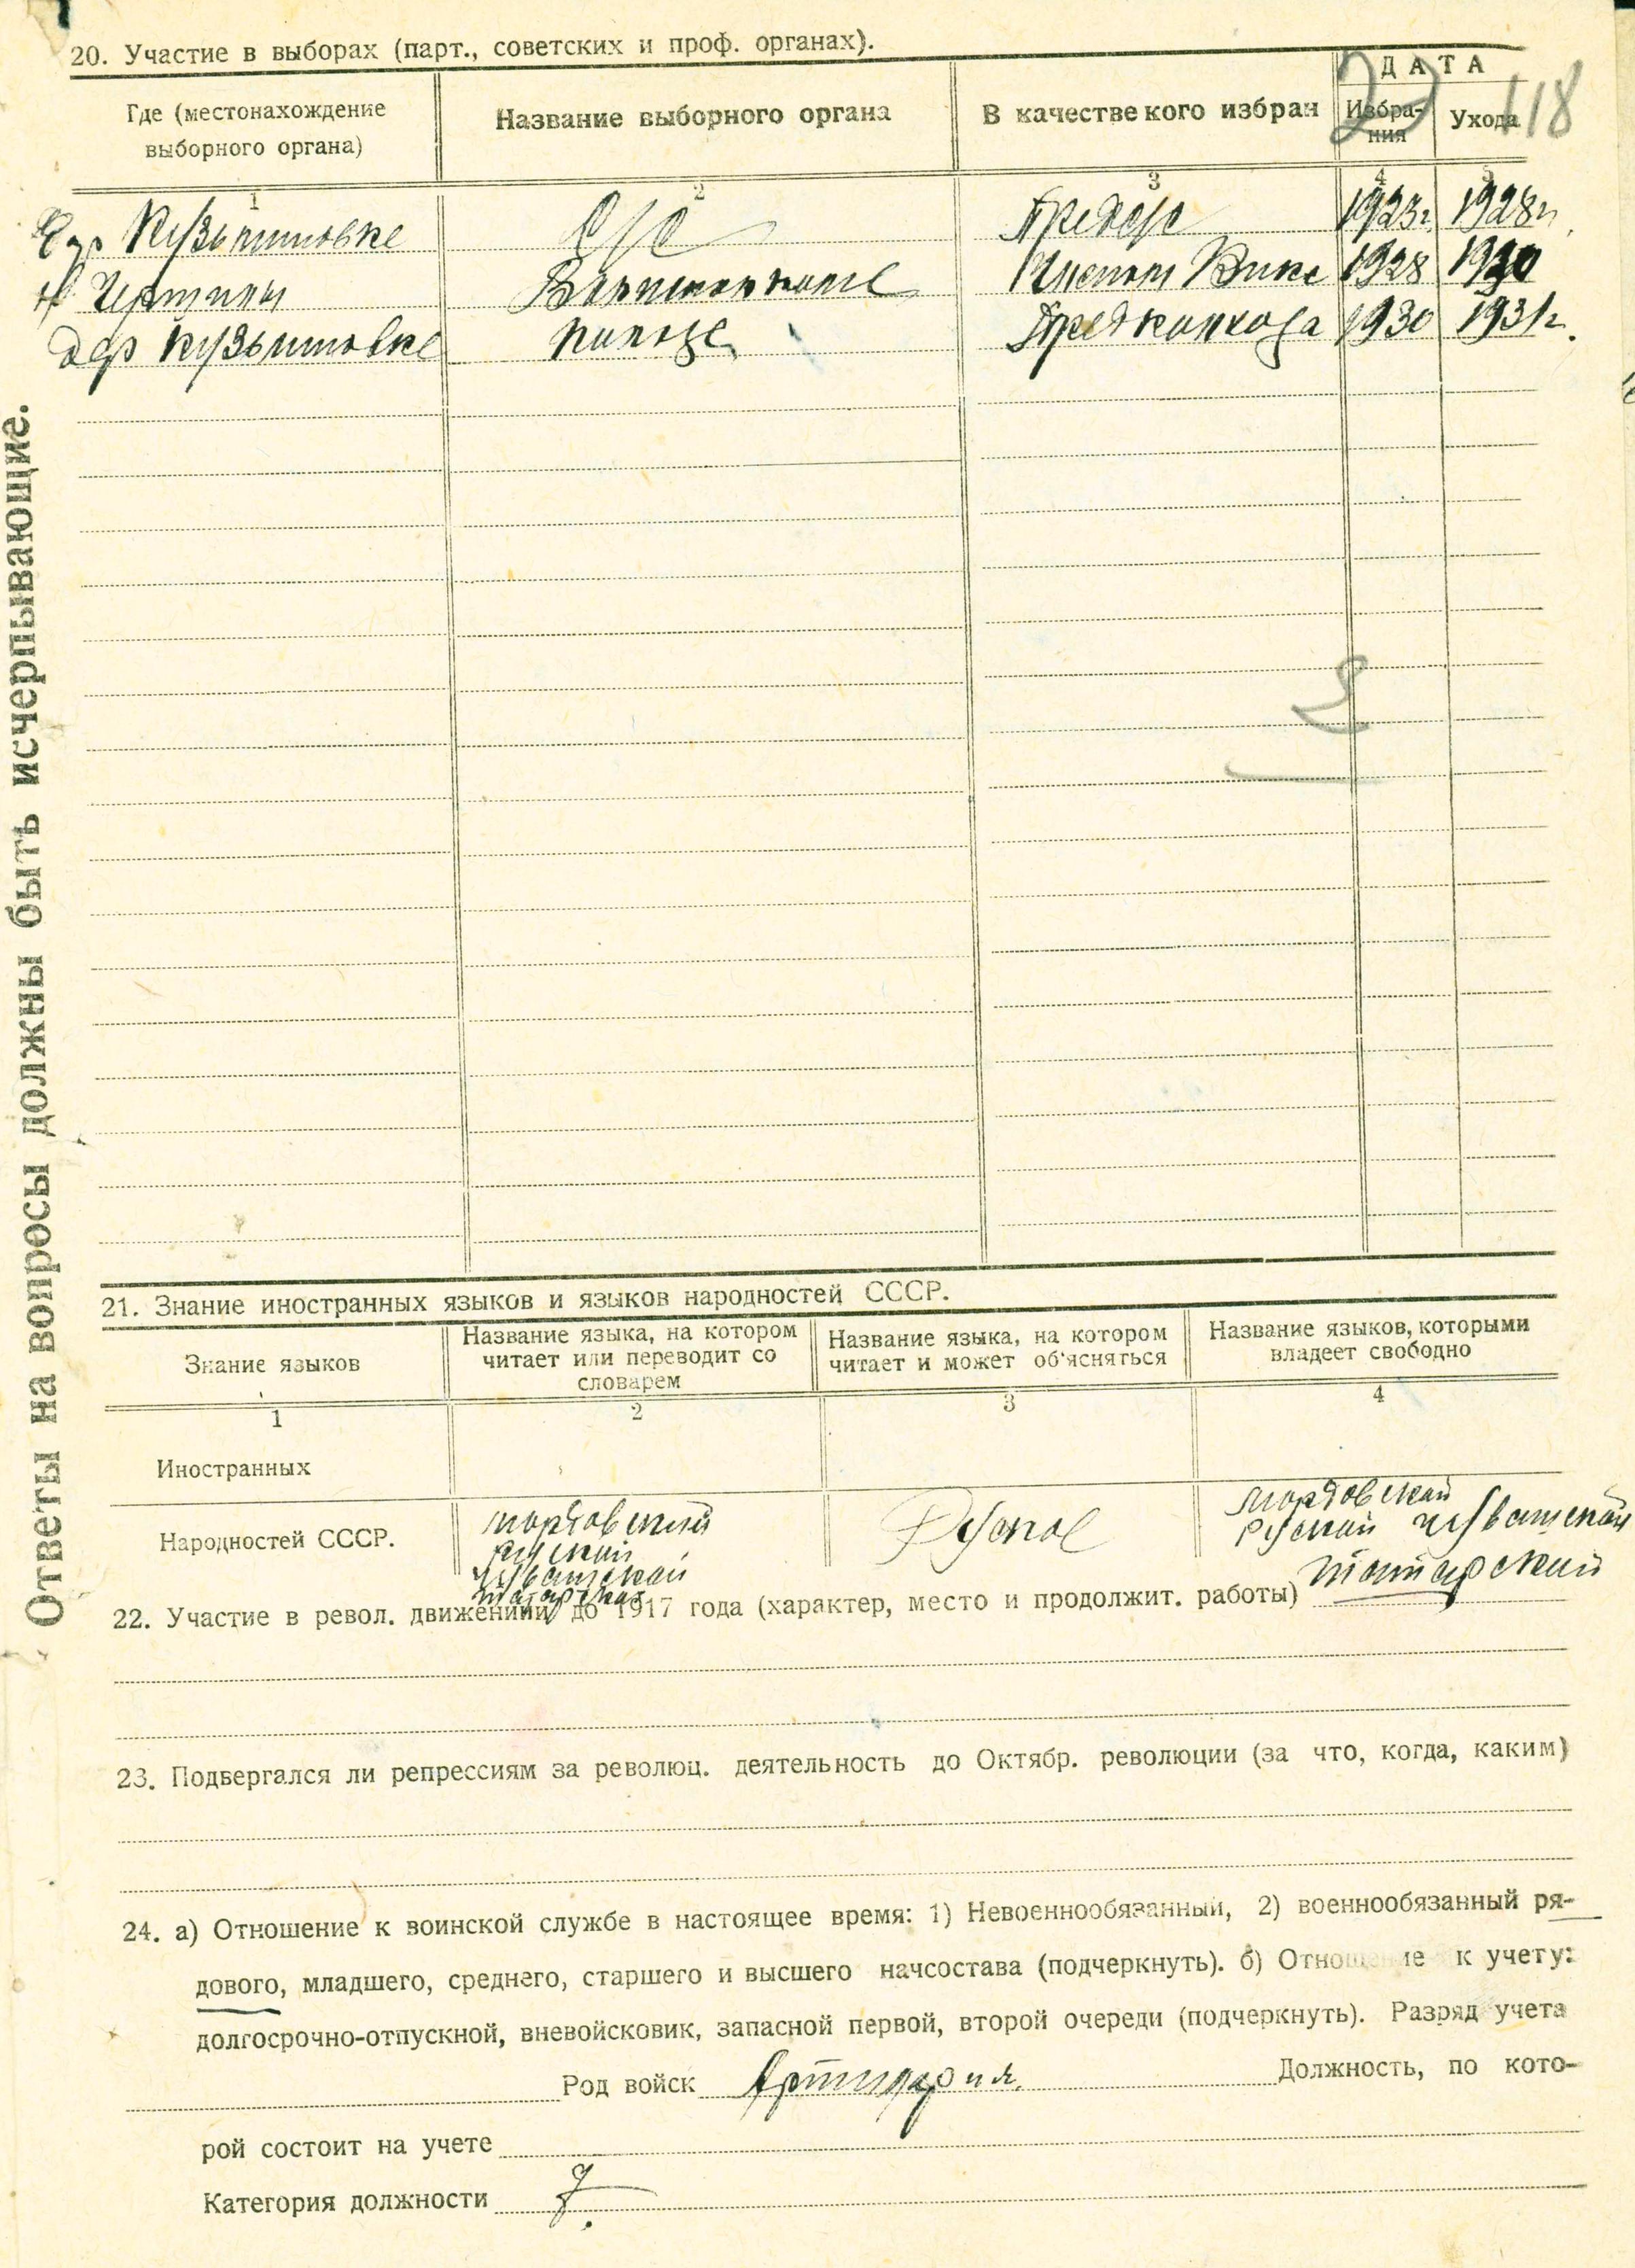 20. Участие в выборах (парт., советских и проф. органах).
Где (местонахождение выборного органа)
Название выборного органа
В качестве кого избран
ДАТА
Избрания
Ухода
118
1 2 3 4 5
Кузьминовке С/С Предс/с 1923г. 1928г.
1928 1930
дер Кузьминовке Колхозе Предколхоза 1930 1931г.
Ответы на вопросы должны быть исчерпывающие.
21. Знание иностранных языков и языков народностей СССР.
Знание языков
Название языка, на котором читает или переводит со словарем
Название языка, на котором читает и может об'ясняться
Название языков, которыми владеет свободно
1 2 3 4
Иностранных
Народностей СССР.
мордовский
руский
чувашской
татарской
Руское
мордовский
руский чувашской
татарский
22. Участие в револ. движении до 1917 года (характер, место и продолжит. работы)
23. Подвергался ли репрессиям за революц. деятельность до Октябр. революции (за что, когда, каким)
24. а) Отношение к воинской службе в настоящее время: 1) Невоеннообязанный, 2) военнообязанный ря-
дового, младшего, среднего, старшего и высшего начсостава (подчеркнуть). б) Отношение к учету:
долгосрочно-отпускной, вневойсковик, запасной первой, второй очереди (подчеркнуть). Разряд учета
Род войск Должность, по кото-
рой состоит на учете
Категория должности 7.